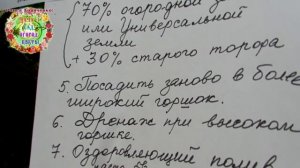 70% огородной з
или Универсальной
земли
+ 30% старого торфа
5. Посадить заново в бол
широкий горшок.
6. Дренаж при высоком
горшке.
7. Оздоровляющий полив